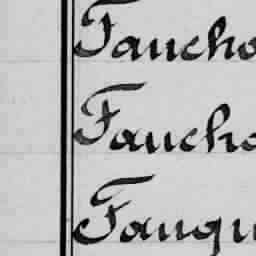 Faucho
Faucho
Fauqu